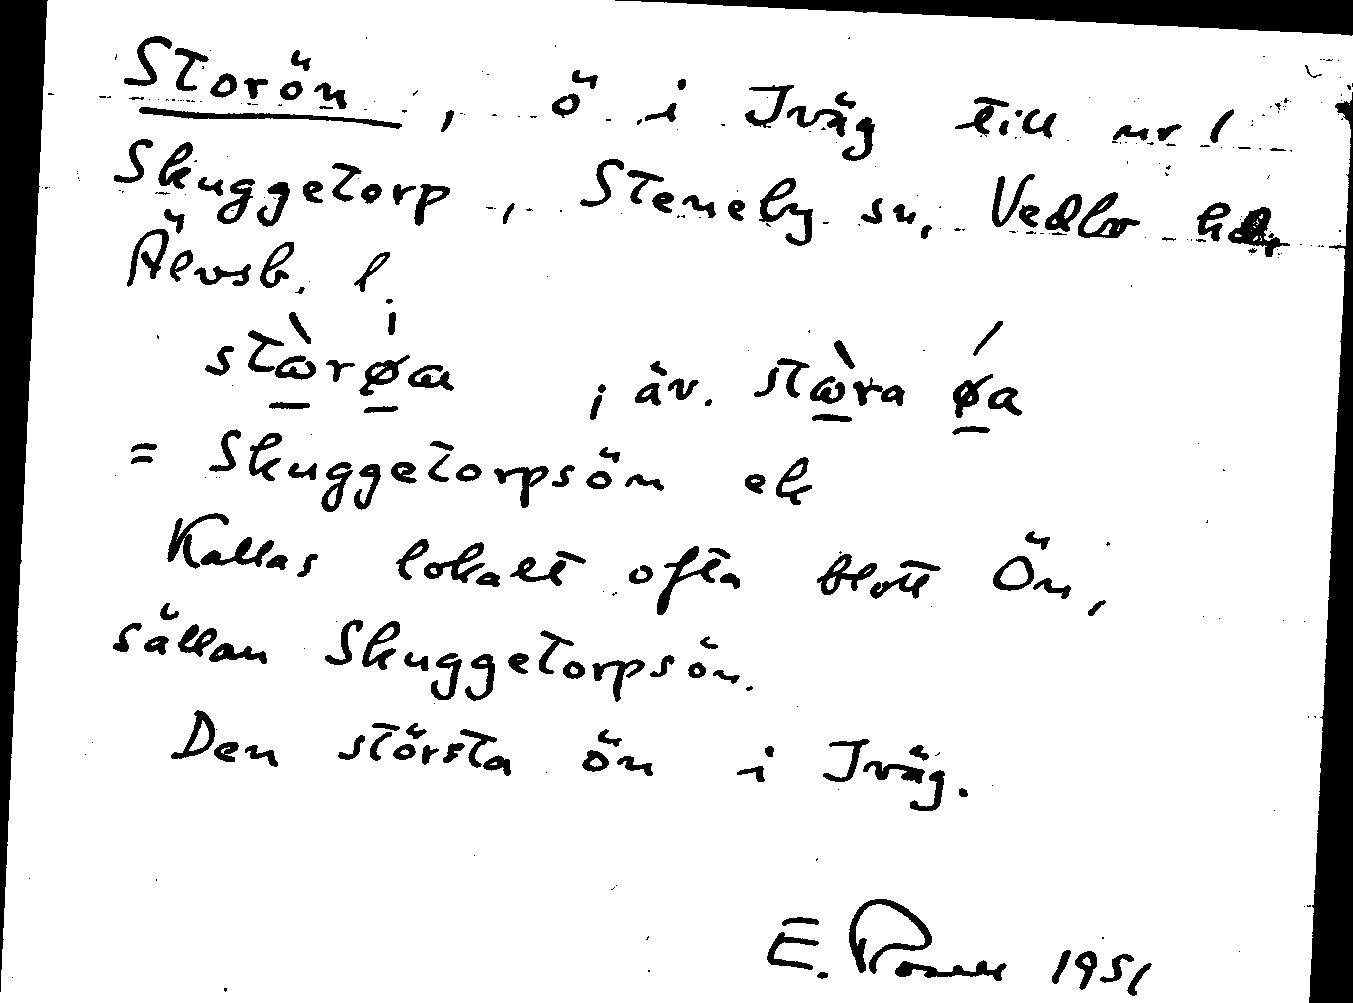 Storön, ö i Iväg till nr 1
Skuggetorp, Steneby sn, Vedbo hd,
Älvsb. l.
stὼ̲rø̲a ; äv. stὼ̲ra ǿ̲a
= Skuggetorpsön ek
Kallas lokalt ofta blott Ön,
sällan Skuggetorpsön.
Den största ön i Iväg.
E. 1951